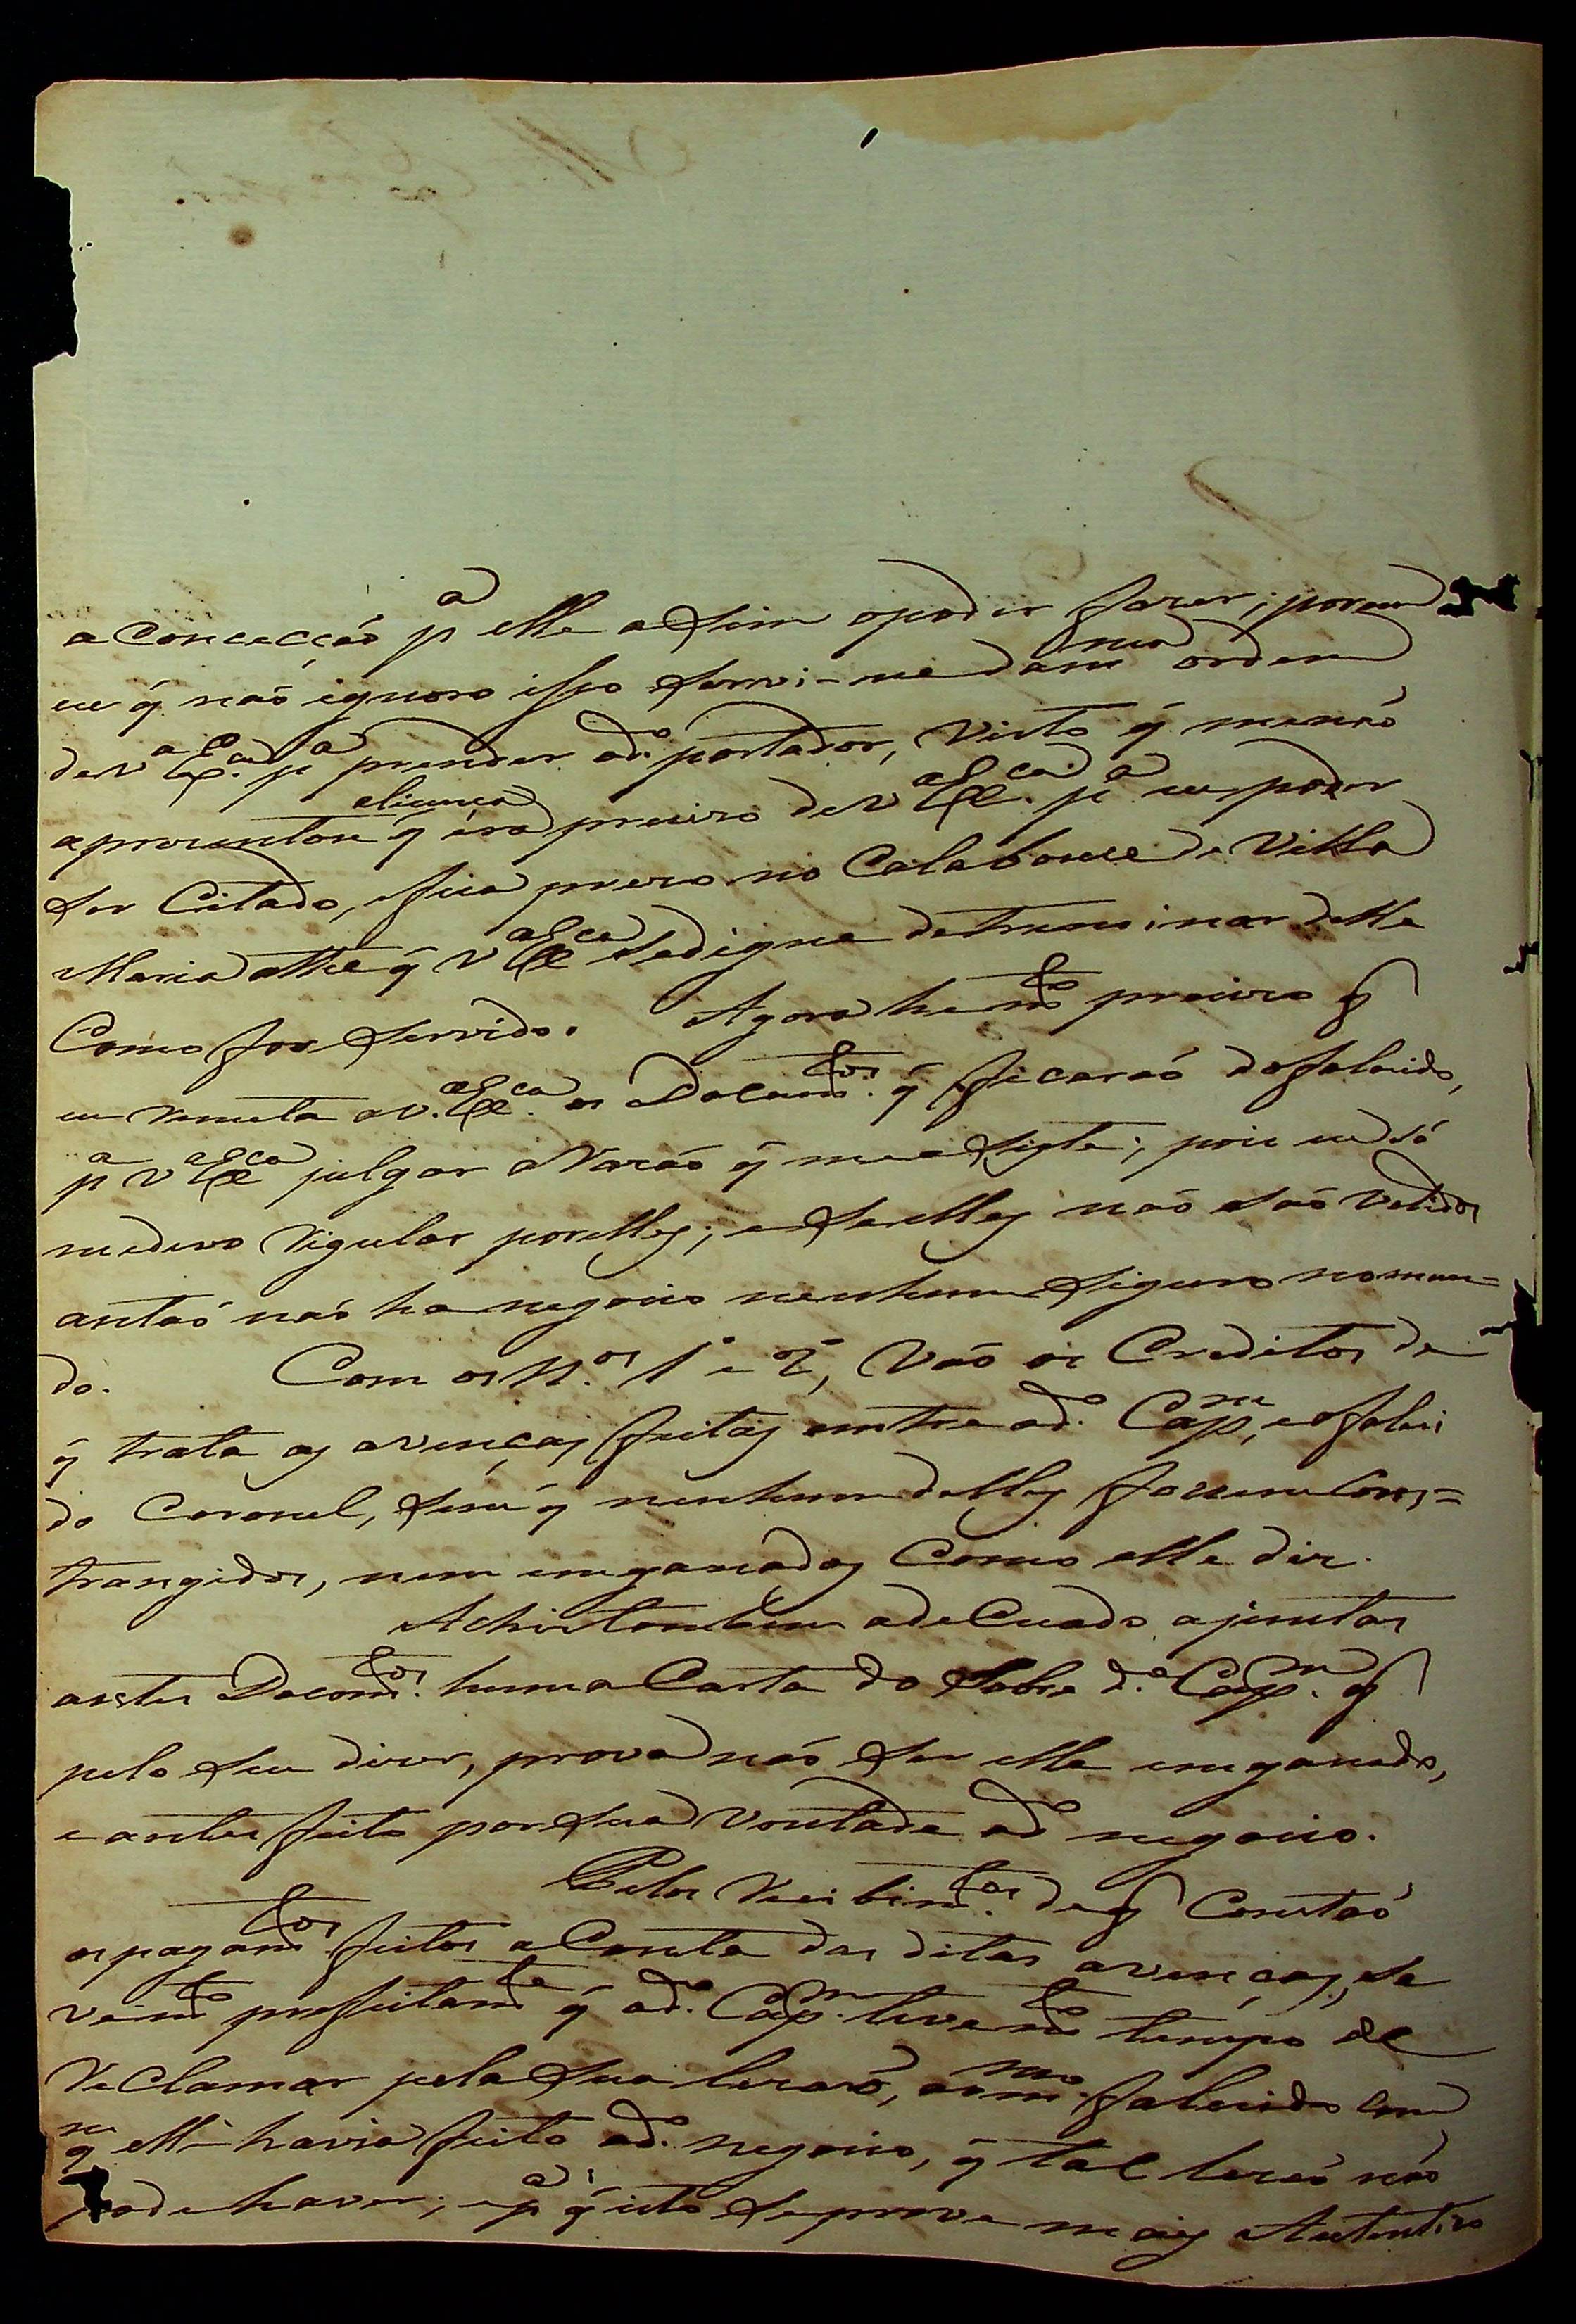 a Concecçaõ pᵃ elle a Sim opoder fazer; porem
eu q̃ naõ ignoro isso Servi-me dam.ᵐᵃ ordem
de Vᵃ Exᶜⁱᵃ pᵃ prender od.º portador, Visto q̃ me naõ
aprezentou Licença q̃ éra precizo de Vᵃ Exᶜⁱᵃ. pᵃ eu poder
Ser Citado, e fica prezo no Calabouce de Villa
Maria athe q̃ Vᵃ Exᶜⁱᵃ Sedigne detreminar delle
Como for Servido. Agora he m.ᵗᵒ precizo q̃
eu Remeta a V.ᵃ Exᶜⁱᵃ. os Docum.ᵗᵒˢ q̃ ficaraõ do falecido,
pᵃ Vᵃ Exᶜⁱᵃ julgar a Razaõ q̃ me a Siste; pois eu Só
me devo Rigular por elles; e Se elles naõ Saõ Validos
antaõ naõ ha negocio nenhum Siguro no mun=
do. Com os N.ᵒˢ 1º e 2º, Vaõ os Creditos de
q̃ trata as avenças feitas entre od.º Capᵐ, e o faleci
do Coronel, Sem q̃ nenhum delles focem Cons=
trangidos, nem enganados Como elle diz.
Achei tambem adeCuado ajuntar
a estes Docum.ᵗᵒˢ huma Carta do Sobre d.º Capᵐ. q̃
pelo Seu dizer, prova naõ Ser elle enganado,
e antes feito por Sua Vontade o d.º negocio.
Pelos Recibim.ᵗᵒˢ de q̃ Constaõ
os pagam.ᵗᵒˢ feitos a Conta das ditas avenças, Se
Ve m.ᵗᵒ prefeitam.ᵗᵉ q̃ od.º Capᵐ. teve m.ᵗᵒ tempo de
ReClamar pela Sua lezaõ, ao m.ᵐᵒ falecido Com
qᵐ elle havia feito od.º negocio, q̃ tal lezaõ naõ
pode haver; e pᵃ q̃ isto Se prove mais Autentico